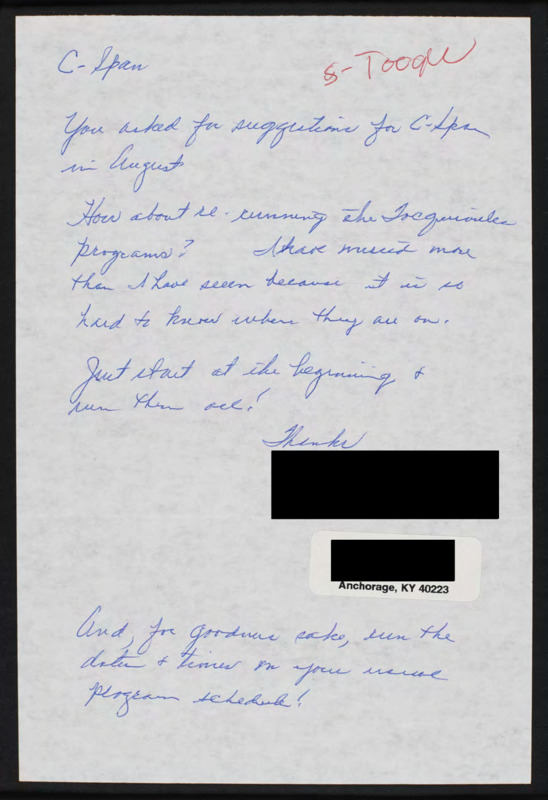 C-Span
You asked for suggestions for C-Span
in August
How about re-running the Tocquiville
programs? I have missed more
than I have seen because it is so
hard to know when they are on.
Just start at the beginning &
run them all!
Thanks
Anchorage, KY 40223
And, for goodness sake, run the
dates & times on your usual
program schedule!